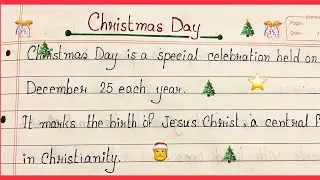 Christmas Day
Christmas Day is a special celebration held on
December 25 each year.
It marks the birth of Jesus Christ, a central
in Christianity.
Page :
Date :